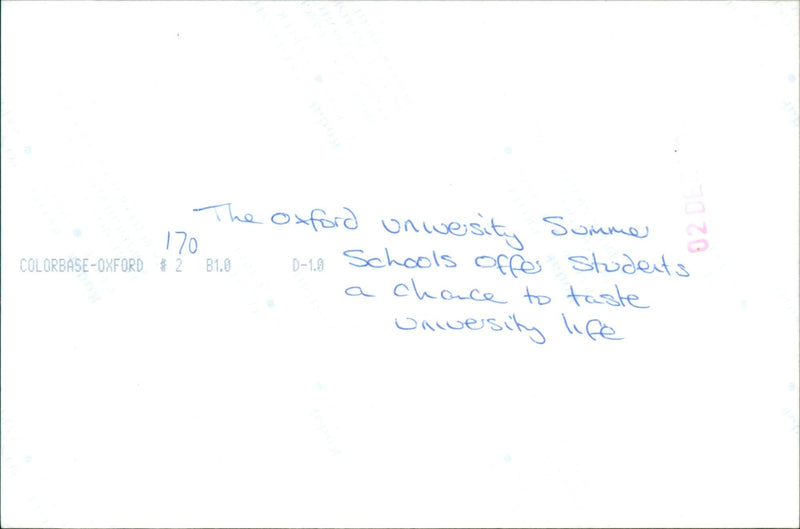 The Oxford University Summer
170
COLORBASE-OXFORD # 2 B1.0 D-1.0
Schools offer students
a chance to taste
university life
02 DE